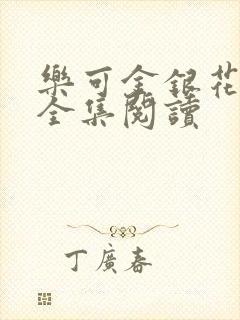 樂可金銀花
全集閱讀
丁廣春